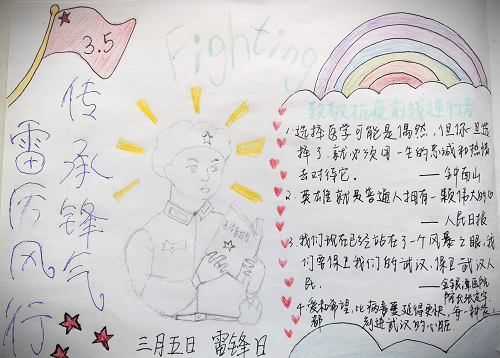 3.5
Fighting
传承锋气
雷厉风行
致敬抗疫前线逆行者
1.选择医学可能是偶然,但你一旦选
择了,就必须用一生的忠诚和热情
去对待它。
——钟南山
2.英雄就是普通人拥有一颗伟大的心
——人民日报
3.我们现在已经站在了个风暴之眼,我
们要保卫我们的武汉,保卫武汉人
民。
——金银潭医院
院长张定宇
4.爱和希望,比病毒蔓延得更快,每一种爱
都 到进武汉的心脏。
三月五日 雷锋日